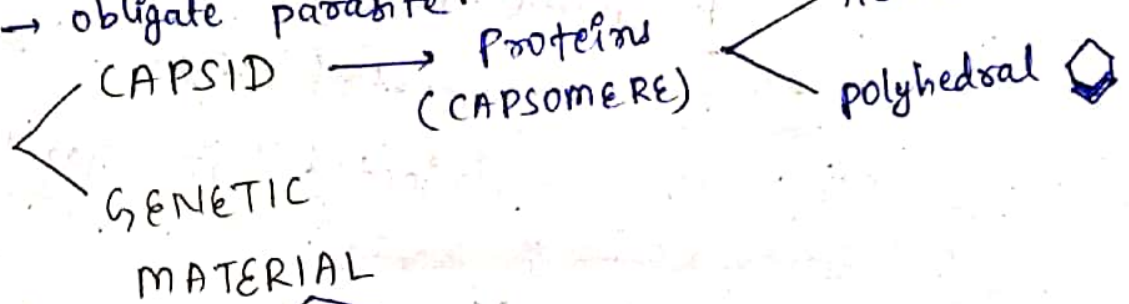 → obligate parasite.
CAPSID → Proteins
(CAPSOMERE)
polyhedral
GENETIC
MATERIAL